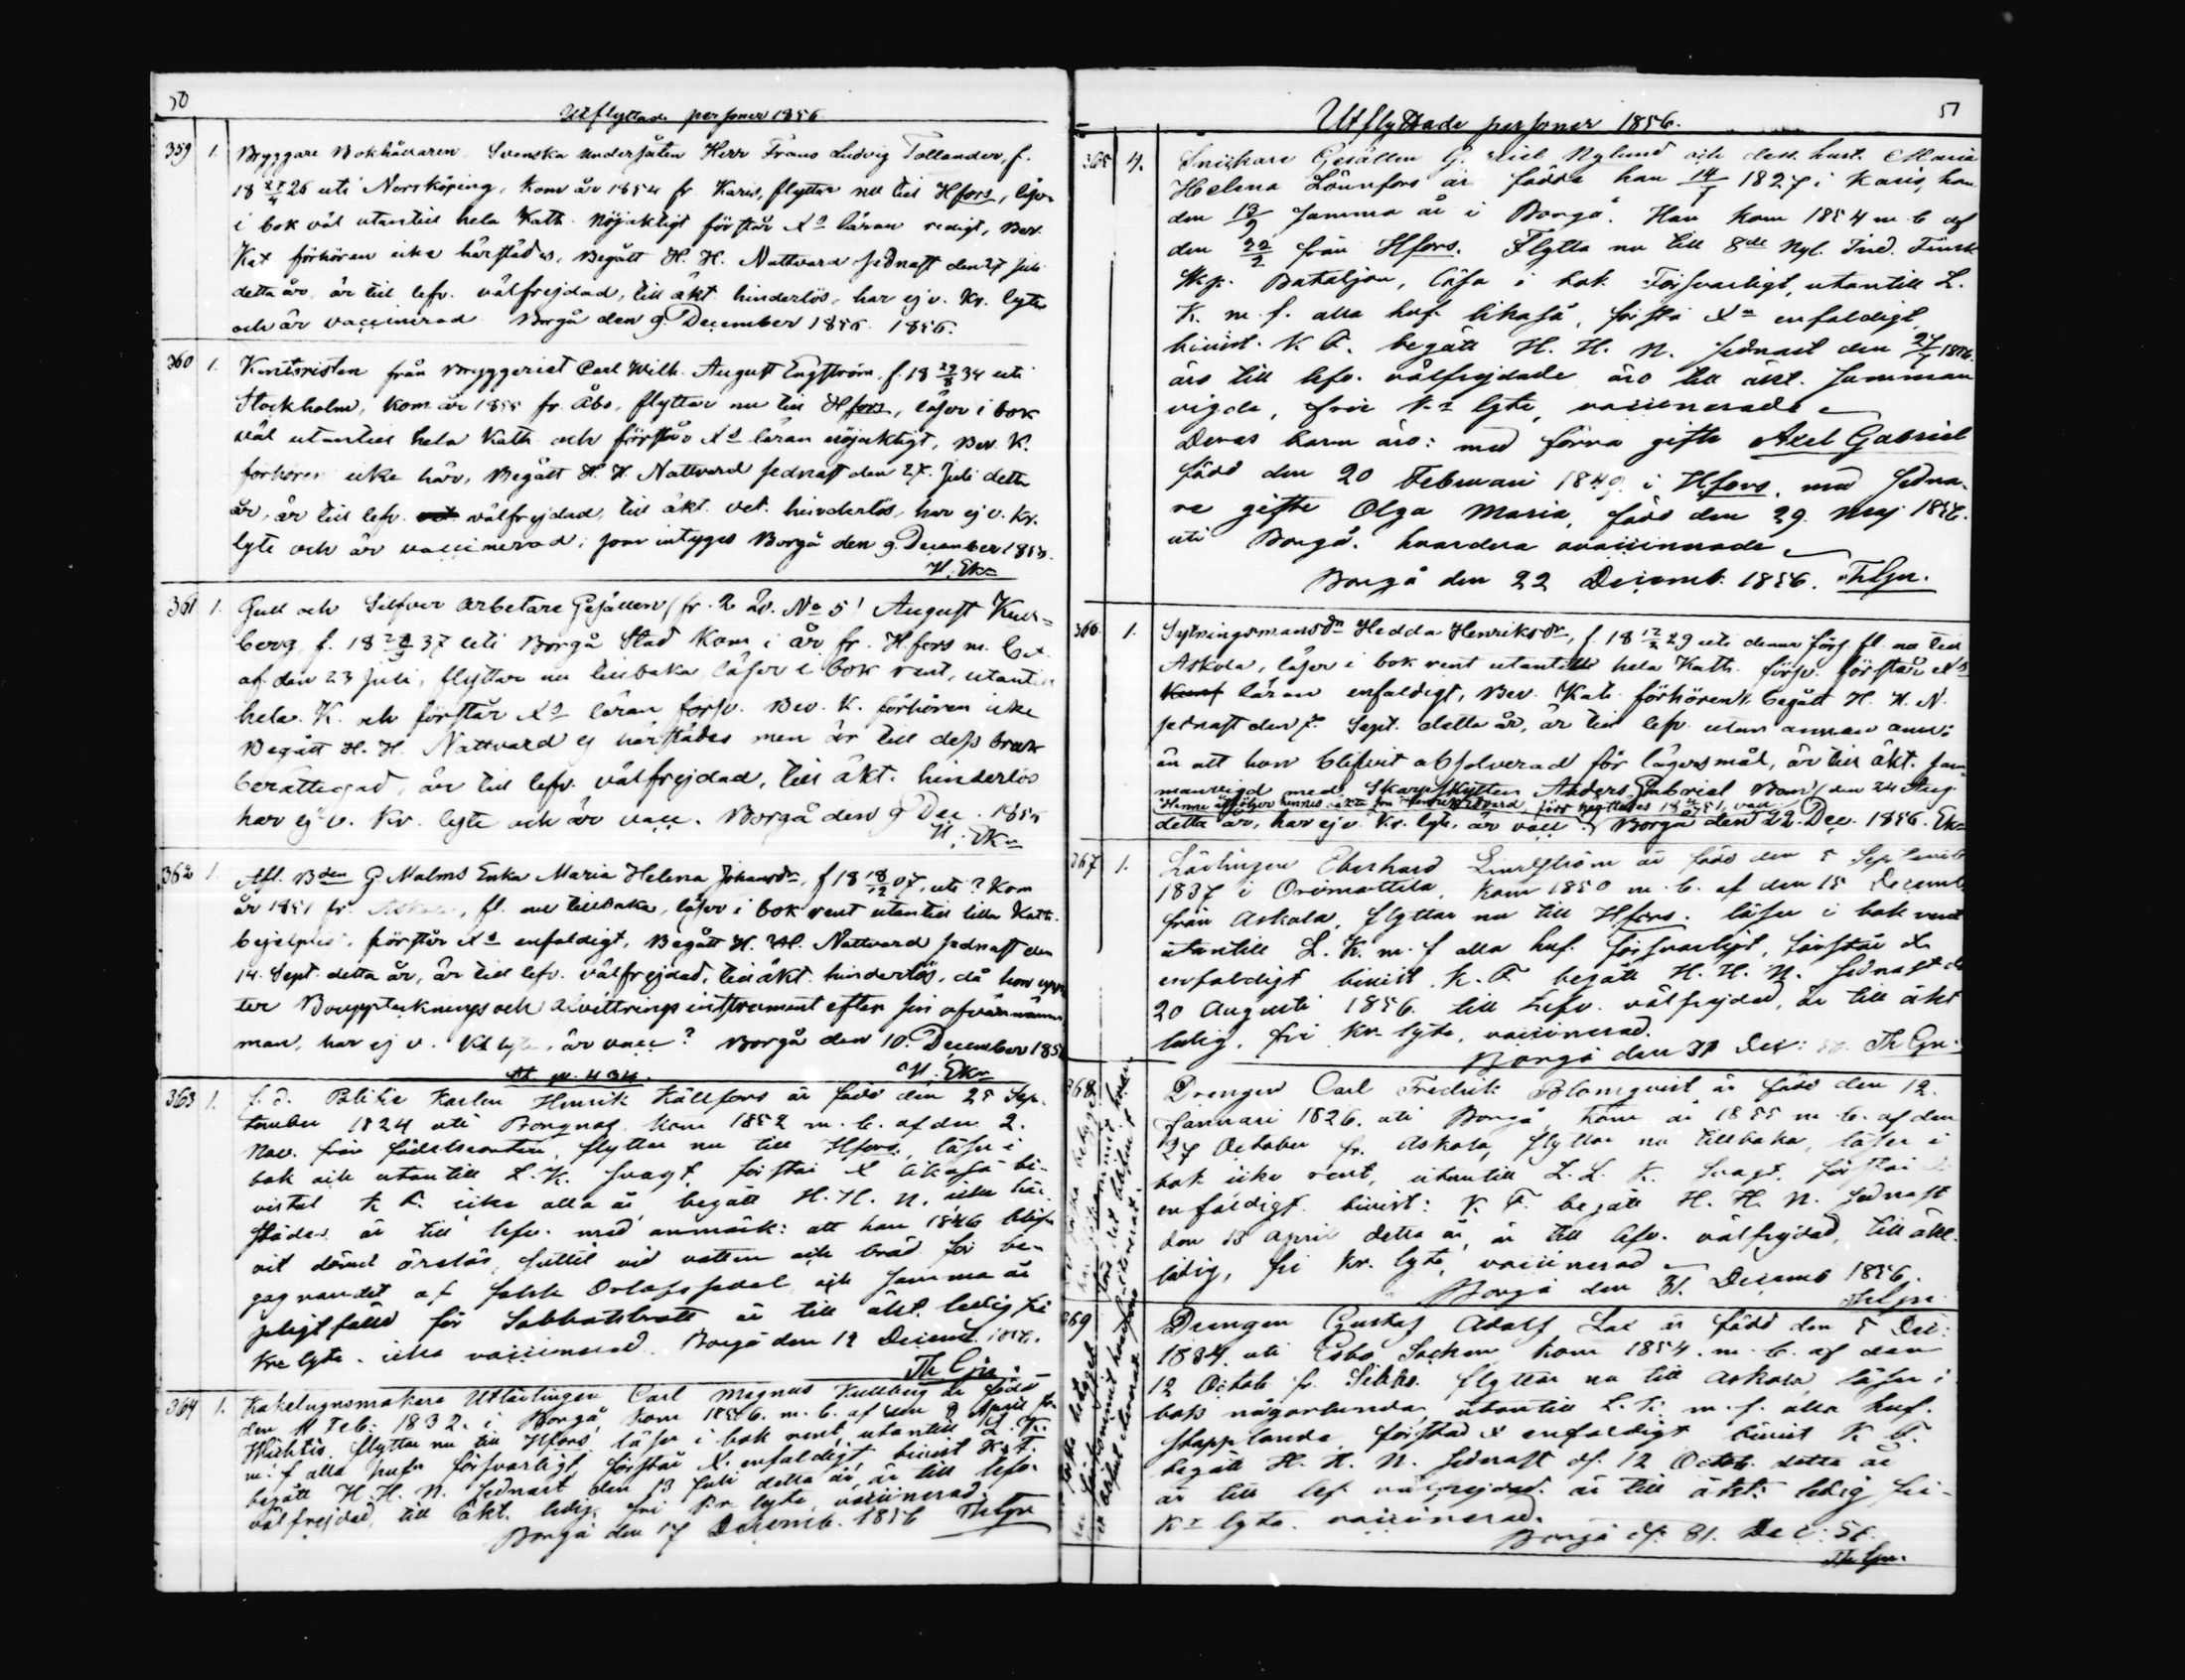 50
Utflyttade personer 1856
359 1. Bryggare Bokhållaren Svenska undersåten Herr Frans Ludvig Tollander, f.
18 26 uti Norrköping, kom år 1854 fr. Karis, flyttar nu till Hfors, läser
i bok väl utantill hela Kath. nöjaktigt förstår Xs läran redigt, Bev.
Kat förhören icke härstädes, Begått H. H. Nattvard sednast den 27 Juli
detta år, är till lefv. välfrejdad, till äkt. hinderlös, har ej v. Kr. lyte
och är vaccinerad Borgå den 9 December 1856. 1856.
360 1. Kontoristen från Bryggeriet Carl Wilh. August Engström, f. 18 29/8 34 uti
Stockholm, kom år 1855 fr. Åbo, flyttar nu till Hfors, läser i bok
väl utantill hela Kath och förstår Xs läran nöjaktigt, Bev. K.
förhören icke här, Begått H. H. Nattvard sednast den 27. Juli detta
år, är till lefv. välfrejdad, till äkt. vet. hinderlös, har ej v. Kr.
lyte och är vaccinerad; som intygas Borgå den 9 December 1856.
H. Ekn
361 1. Guld och Silfver arbetare Gesällen (fr. 2 Qv. No 5) August
berg, f. 18 37 uti Borgå Stad kom i år fr. Hfors m. bet.
af den 23 Juli, flyttar nu tillbaka läser i bok rent, utantill
hela K. och förstår Xs läran försv. Bev. K. förhören icke
Begått H. H. Nattvard ej härstädes men är till dess bruk
berättigad, är till lefv. välfrejdad, till äkt. hinderlös
har ej v. Kr. lyte och är vacc. Borgå den 9 Dec. 1856
H. Ekn
362 1 Afl. Bden G Malms Enka Maria Helena Johansdr, f 18 18/12 07, uti? Kom
år 1851 fr. Askola, fl. nu tillbaka, läser i bok rent utantill lilla Kath.
förstår Xs enfaldigt, Begått H. H. Nattvard sednast den
14. Sept. detta år, är till lefv. välfrejdad, till äkt. hinderlös, då hon
ter Bouppteckningsoch afvittrings instrument efter sin
man, har ej v. Kr lyte, är vacc? Borgå den 10. December 185
H. Ekn
363 1. f. d. Politie Karlen Henrik Källfors är född den 25 Sep-
tember 1824 uti Borgnäs kom 1852 m. b. af den 2.
Nov. från födelseorten, flyttar nu till Hfors, läser i
bok och utantill L. K. svagt, förstår X likaså bi-
vistat K F. icke alla år, begått H. H. N. icke här
städes, är till lefv. med anmärk: att han 1846 blif-
vit dömd ärelös, suttit vid vatten och bröd för be-
gagnandet af falsk Orlofssedel och samma år
pligtfälld för Sabbatsbrott är till äkt. ledig fri
Kre lyte. icke vaccinerad Borgå den 12 Decemb. 1856.
Th Gn
364 1. Kakelugnsmakare Utlärlingen Carl Magnus Kullberg är född
den 11 Feb. 1832. i Borgå kom 1856. m. b. af den 9 April fr.
Wichtis, flyttar nu till Hfors, läser i bok rent, utantill L. K.
m. f alla hufst. försvarligt, förstår X. enfaldigt bivist K. F.
begått H. H. N. sednast den 13 Juli detta år, är till lefv.
välfrejdad, till äkt. ledig, fri Kr lyte, vaccinerad.
Borgå den 17 Decemb. 1856 Th Gn
51
Utflyttade personer 1856.
365 4. Snickare Gesällen G. Nylund och dess hust. Maria
Helena Lönnfors är födde han 14 1827 i Karis, hon
den 13/9 samma år i Borgå. Han kom 1854 m. b af
den 22/2 från Hfors. Flytta nu till 8de Nyl. Ind. Finsk
Skp. Bataljon, läsa i bok Försvarligt, utantill L.
K. m. f. alla huf. likaså, förstå Xn enfaldigt,
bivist. K F. begått H. H. N. sednast den 27 1856.
äro till lefv. välfrejdade äro till äkt. samman
vigde, fria Kr lyte, vaccinerade
Deras barn äro: med förra gifte Axel Gabriel
född den 20 Februari 1849. i Hfors, med sedna-
re gifte Olga Maria, född den 29. Maj 1856.
uti Borgå. hvardera ovaccinerade
Borgå den 22 Decemb. 1856. Th Gn.
366. 1. Sytningsmansdn Hedda Henriksdr, f. 18 12/2 29 uti denna förs. fl. nu till
Askola, läser i bok rent utantill hela Kath. försv. förstår Xs
läran enfaldigt, Bev. Kat. förhören, begått H. H. N.
sednast den 7. Sept. detta år, är till lefv. utan annan anm:
än att hon blifvit absolverad för lägersmål, är till äkt. sam
manvigd med Skarpskytten Anders Gabriel (den 24 Aug.
detta år, har ej v. Kr. lyte, är vacc. Borgå den 22. Dec. 1856. Ekn
367 1. Lärlingen Eberhard Lindström är född den 5 September
1837 i Orimattila, kom 1850 m. b. af den 15 Decemb.
från Askola, flyttar nu till Hfors. läser i bok rent
utantill L. K. m. f alla huf. försvarligt, förstår X
enfaldigt bivist K. F. begått H. H. N. sednast d
20 Augusti 1856. till Lefv. välfrejdad, är till äkt
ledig, fri Kr lyte, vaccinerad.
Borgå den 31 Dec: Th Gn.
368 Drengen Carl Fredrik Blomqvist är född den 12.
Januari 1826. uti Borgå, kom år 1855 m. b. af den
27 October fr. Askola, flyttar nu tillbaka, läser i
bok icke rent, utantill L. L. K. Svagt. förstår
enfaldigt. bivist: K. F. begått H. H. N. sednast
den 13 April detta år, är till lefv. välfrejdad, till äkt.
ledig, fri Kr. lyte, vaccinerad
Borgå den 31. Decemb 1856.
Th Gn
369 Drengen Gustaf Adolf är född den 5 Dec:
1834. uti Esbo Socken kom 1854. m. b. af den
12 Octob fr. Sibbo. flyttar nu till Askola, läser i
bok någorlunda, utantill L. K. m. f. alla huf.
stapplande, förstår X enfaldigt bivist K. F.
begått H. H. N. sednast d. 12 Octob. detta år
är till lef. välfrejdad. är till äkt: ledig fri
Kr lyte. vaccinerad.
Borgå d. 31. Dec: 56.
Th Gn.